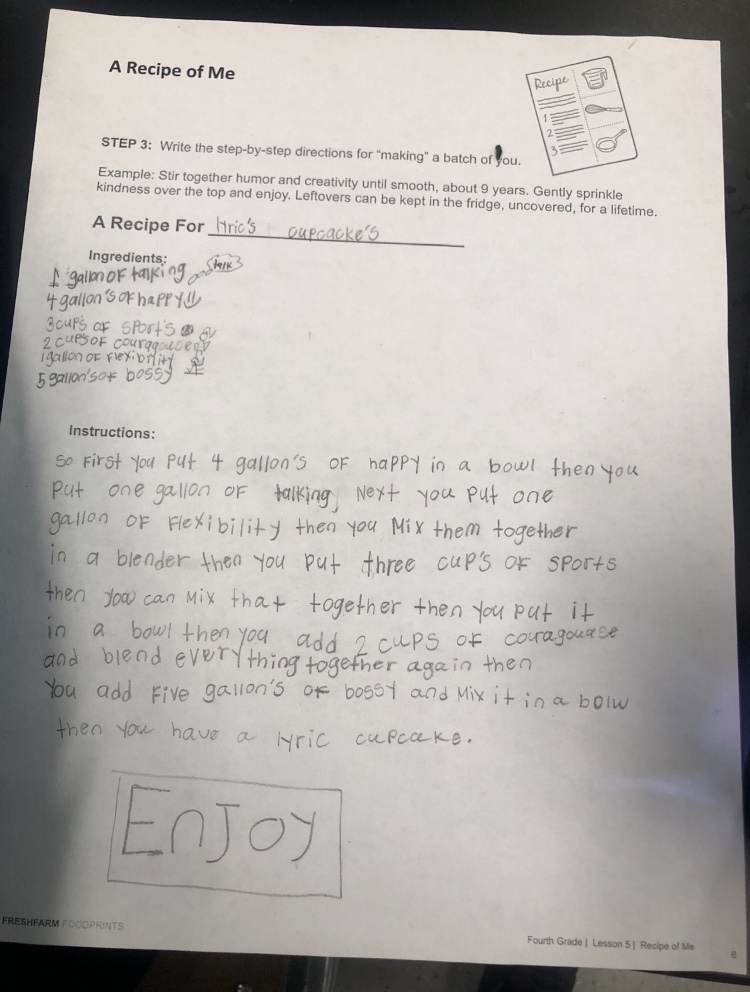 A Recipe of Me
Recipe
1
2
3
STEP 3: Write the step-by-step directions for "making" a batch of you.
Example: Stir together humor and creativity until smooth, about 9 years. Gently sprinkle
kindness over the top and enjoy. Leftovers can be kept in the fridge, uncovered, for a lifetime.
A Recipe For lyric's cupcacke's
Ingredients:
1 gallon of talking talk
4 gallon's of happy
3 cup's of sport's
2 cups of couragouse
1 gallon of flexibility
5 gallon's of bossy
Instructions:
so First you put 4 gallon's of happy in a bowl then you
put one gallon of talking, Next you put one
gallon of Flexibility then you Mix them together
in a blender then you put three cup's of sports
then you can Mix that together then you put it
in a bowl then you add 2 cups of couragouase
and blend everything together again then
You add Five gallon's of bossy and Mix it in a bolw
then you have a lyric cupcake.
Enjoy
FRESHFARM FOODPRINTS
Fourth Grade | Lesson 5 | Recipe of Me
6